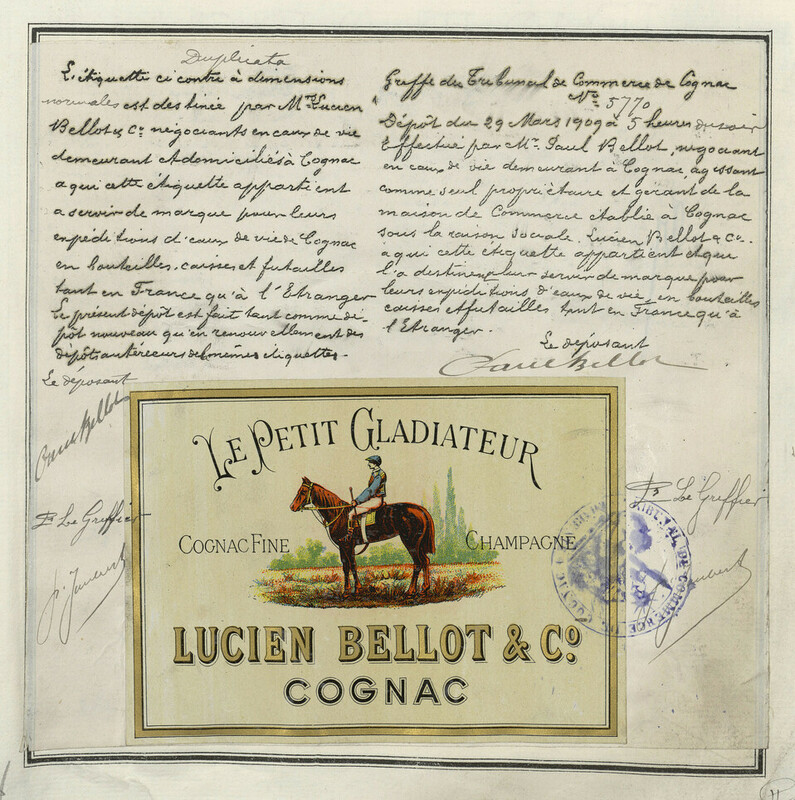 Duplicata
L'étiquette ci contre à dimensions
normales est destinée par Mrs Lucien
Bellot & Co négociants en eaux de vie
demeurant et domiciliés à Cognac
a qui cette étiquette appartient
a servir de marque pour leurs
expéditions d'eaux de vie de Cognac
en bouteilles, caisses et futailles
tant en France qu'à l'Etranger
Le présent dépôt est fait tant comme dé-
pôt nouveau qu'en renouvellement des
dépôts antérieurs des mêmes étiquettes.-
Le déposant
Paul Bellot
Pr Le Greffier
Greffe du Tribunal de Commerce de Cognac
No 5770
Dépôt du 29 Mars 1909 à 5 heures du soir
Effectué par Mr. Paul Bellot, négociant
en eaux de vie demeurant à Cognac, agissant
comme seul propriétaire et gérant de la
maison de Commerce établie à Cognac
sous la raison sociale. Lucien Bellot & Co.
a qui cette étiquette appartient et que
l'a destinée pour servir de marque pour
leurs expéditions d'eaux de vie, en bouteilles
caisses et futailles tant en France qu'à
l'Etranger.
Le déposant
Paul Bellot
Pr Le Greffier
LE PETIT GLADIATEUR
COGNAC FINE CHAMPAGNE
LUCIEN BELLOT & Co.
COGNAC
TRIBUNAL DE COMMERCE